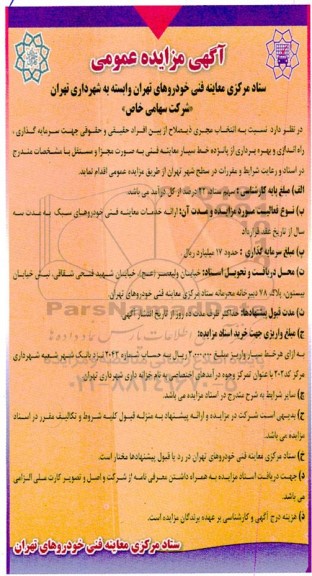 آگهی مزایده عمومی
ستاد مرکزی معاینه فنی خودروهای تهران وابسته به شهرداری تهران
«شرکت سهامی خاص»
در نظر دارد نسبت به انتخاب مجری ذیصلاح از بین افراد حقیقی و حقوقی جهت سرمایه گذاری،
راه اندازی و بهره برداری از پانزده خط سیار معاینه فنی به صورت مجزا و مستقل با مشخصات مندرج
در اسناد و رعایت شرایط و مقررات در سطح شهر تهران از طریق مزایده عمومی اقدام نماید.
الف) مبلغ پایه کارشناسی: سهم ستاد، ۲۲ درصد از کل درآمد می باشد.
ب) نوع فعالیت مورد مزایده و مدت آن: ارائه خدمات معاینه فنی خودروهای سبک به مدت سه
سال از تاریخ عقد قرارداد
پ) مبلغ سرمایه گذاری: حدود ۱۷ میلیارد ریال
ت) محل دریافت و تحویل اسناد: خیابان ولیعصر (عج)، خیابان شهید فتحی شقاقی، نبش خیابان
بیستون، پلاک ۷۸ دبیرخانه محرمانه ستاد مرکزی معاینه فنی خودروهای تهران
ث) مدت قبول پیشنهادها: حداکثر ظرف مدت ده روز از تاریخ انتشار آگهی
ج) مبلغ واریزی جهت خرید اسناد مزایده:
به ازای هر خط سیار واریز مبلغ ۲۰۰۰۰۰۰ ریال به حساب شماره ۲۰۴۲ نزد بانک شهر شعبه شهرداری
مرکز کد ۲۰۲ با عنوان تمرکز وجوه درآمدهای اختصاصی به نام خزانه داری شهرداری تهران
چ) سایر شرایط به شرح مندرج در اسناد مزایده می باشد.
ح) بدیهی است شرکت در مزایده و ارائه پیشنهاد به منزله قبول کلیه شروط و تکالیف مقرر در اسناد
مزایده می باشد.
خ) ستاد مرکزی معاینه فنی خودروهای تهران در رد یا قبول پیشنهادها مختار است.
د) جهت دریافت اسناد مزایده به همراه داشتن معرفی نامه از شرکت و اصل و تصویر کارت ملی الزامی
می باشد.
ذ) هزینه درج آگهی و کارشناسی بر عهده برندگان مزایده است.
ستاد مرکزی معاینه فنی خودروهای تهران